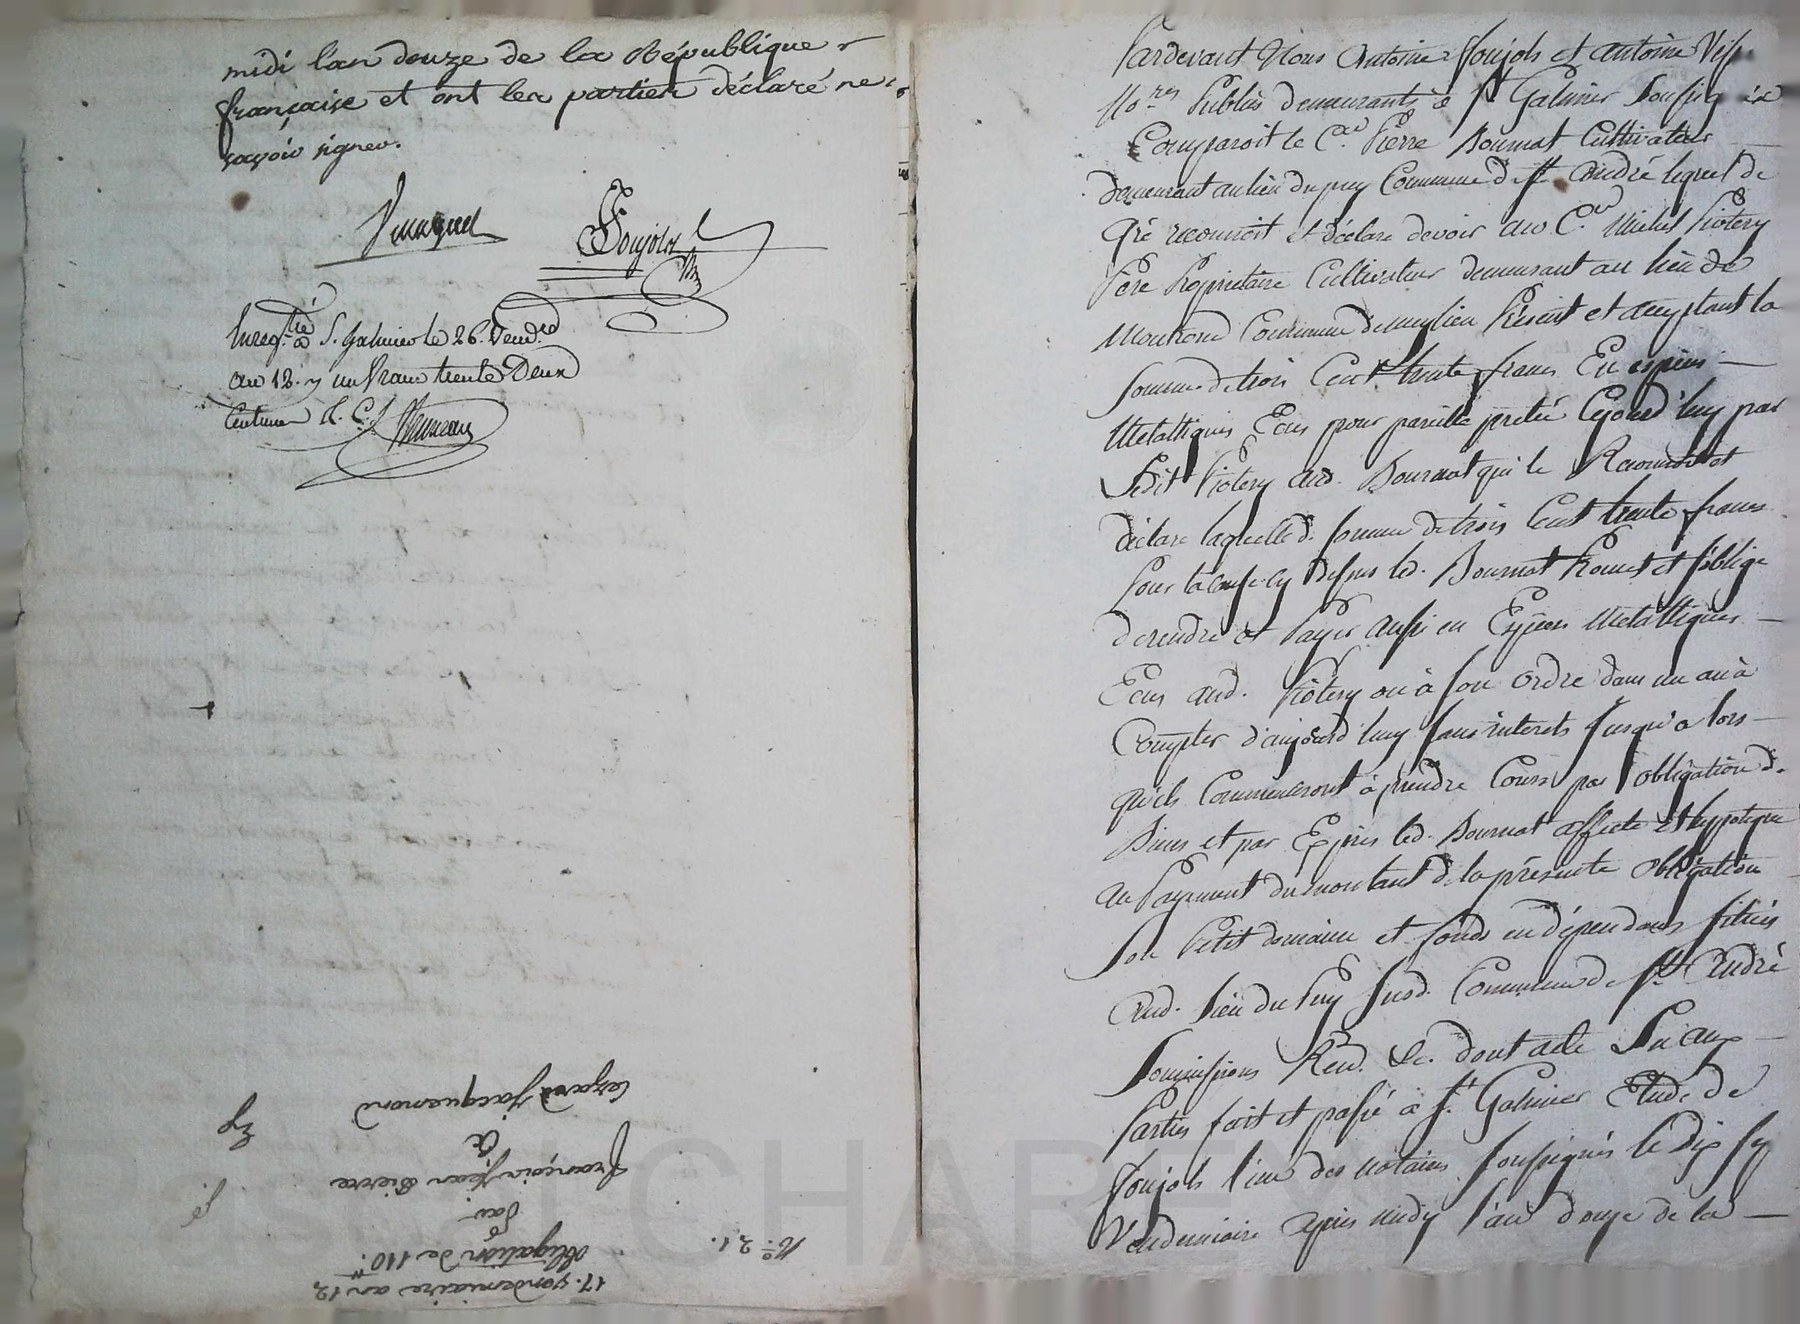 midi l'an douze de la République
française et ont les parties déclaré ne
sçavoir signer.
Foujols
Enregtré à St. Galmier le 26. Vend.re
an 12. un franc trente Deux
Centimes
17. vendemiaire an 12
obligation de 110.#
Par
françois jean pierre
à
jacquemond
N.o 21.
Pardevant Nous Antoine Foujols et antoine
No.res Publics demeurants à St Galmier Soussignés
Comparoit le C.en Pierre Bournat Cultivateur
demeurant au lieu du puy Commune de St André lequel de
Gré reconnoit et déclare devoir au C.en Michel Piotery
Père Propriétaire Cultivateur demeurant au lieu de
Montrond Commune de meylieu Présent et acceptant la
Somme de trois Cent trente francs En espèces
Metalliques Ecus pour pareille pretée Cejourd'huy par
Ledit Piotery aud. Bournat qui le Reconnoit et
déclare laquelle d. somme de trois Cent trente francs
Pour la cause cy dessus led. Bournat Promet et s'oblige
de rendre et Payer aussi en Espèces Metalliques
Ecus aud. Piotery ou à son Ordre dans un an à
Compter d'aujourd'huy sans interets Jusqu'alors
qu'ils Commenceront à prendre Cours par obligation de
Biens et par Exprès led. Bournat affecte et hypoteque
au Payement du montant de la présente Obligation
Son Petit domaine et fonds en dépendans situés
aud. Lieu du Puy Susd. Commune de St André
Soumissions Ren. &c. dont acte Lu aux
Parties fait et passé à St. Galmier Etude de
Foujols l'un des Notaires soussignés le Dix sep
Vendemiaire après midy l'an douze de la